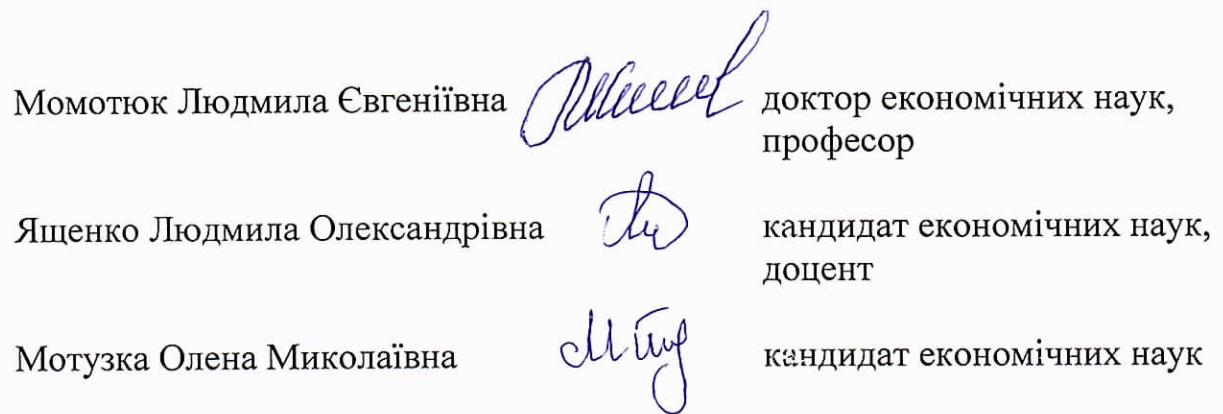 Момотюк Людмила Євгеніївна доктор економічних наук,
професор
Ященко Людмила Олександрівна кандидат економічних наук,
доцент
Мотузка Олена Миколаївна кандидат економічних наук